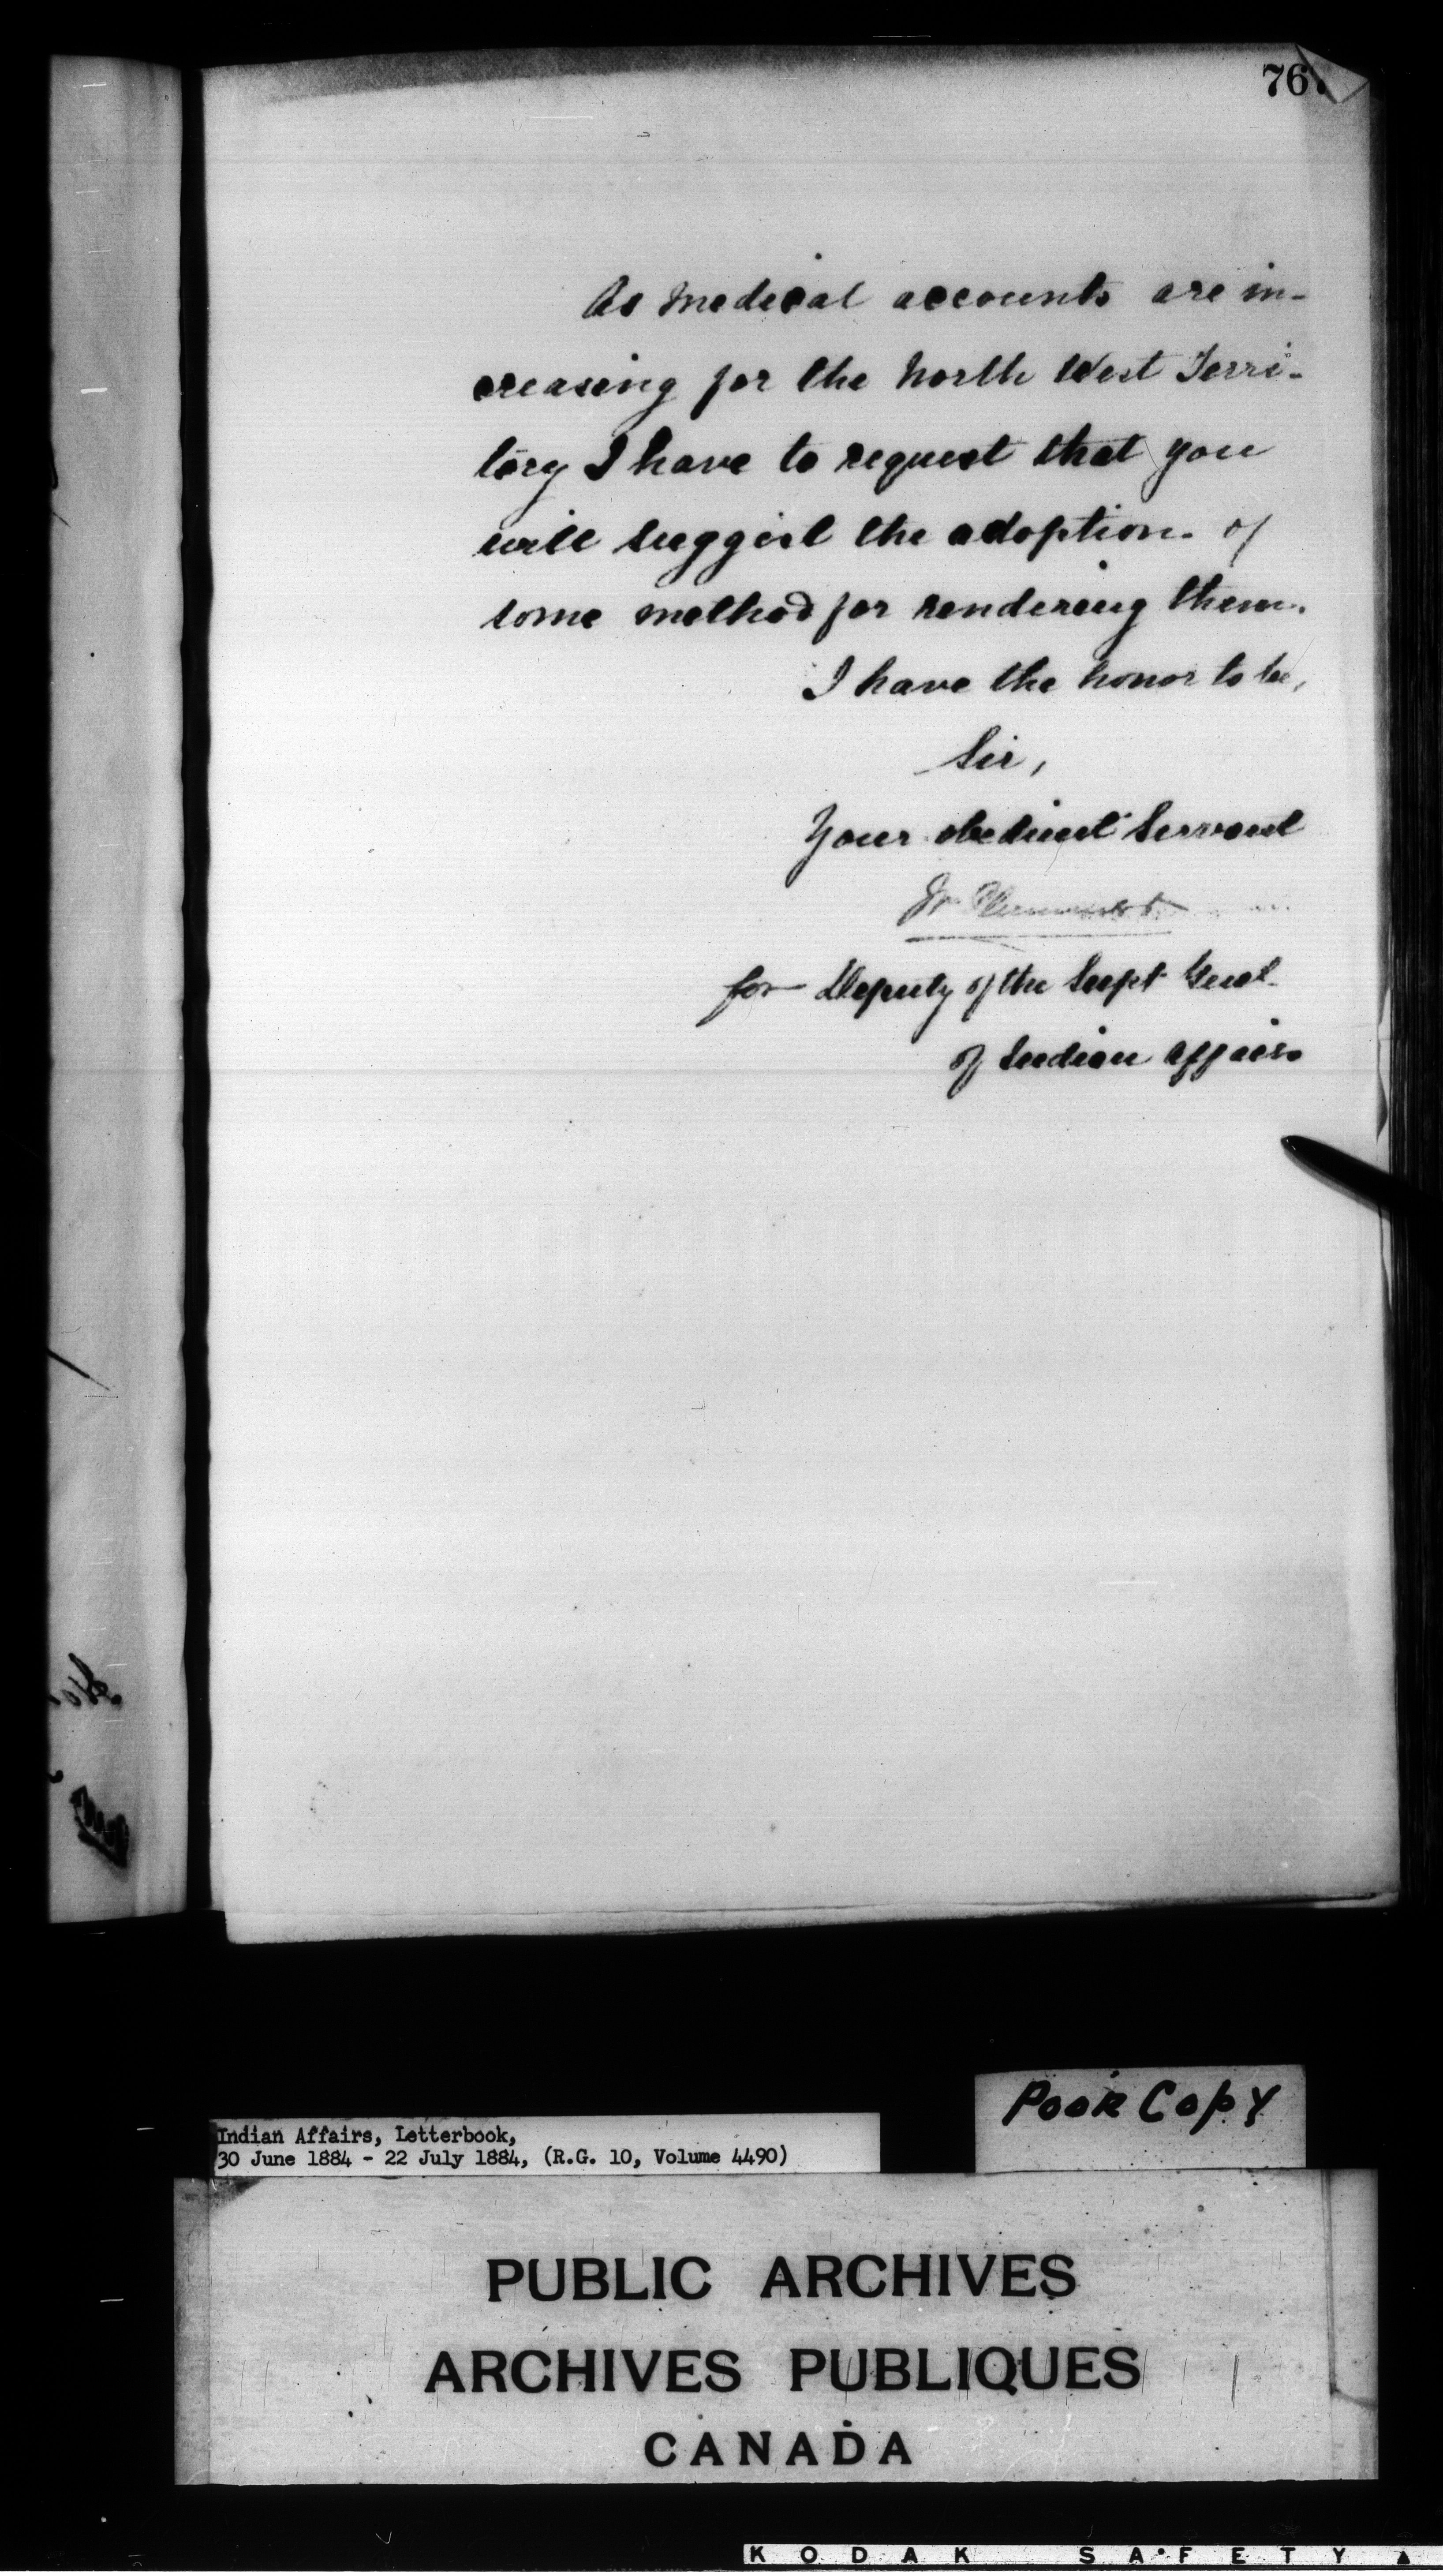 76
As Medical accounts are in-
creasing for the North West Terri-
tory I have to request that you
will suggest the adoption of
some method for rendering them.
I have the honor to be,
Sir,
Your obedient Servant
for Deputy of the Supt Genl.
of Indian Affairs
Poor Copy
Indian Affairs, Letterbook,
30 June 1884 - 22 July 1884, (R.G. 10, Volume 4490)
PUBLIC ARCHIVES
ARCHIVES PUBLIQUES
CANADA
KODAK SAFETY